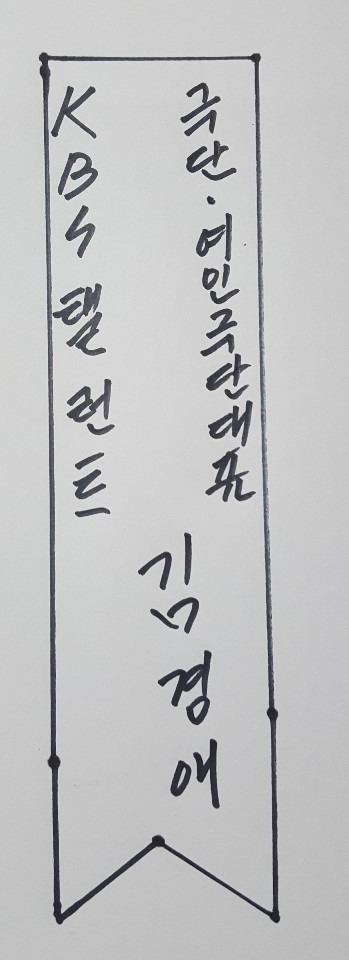 극단·여인극단대표
KBS탤런트
김경애